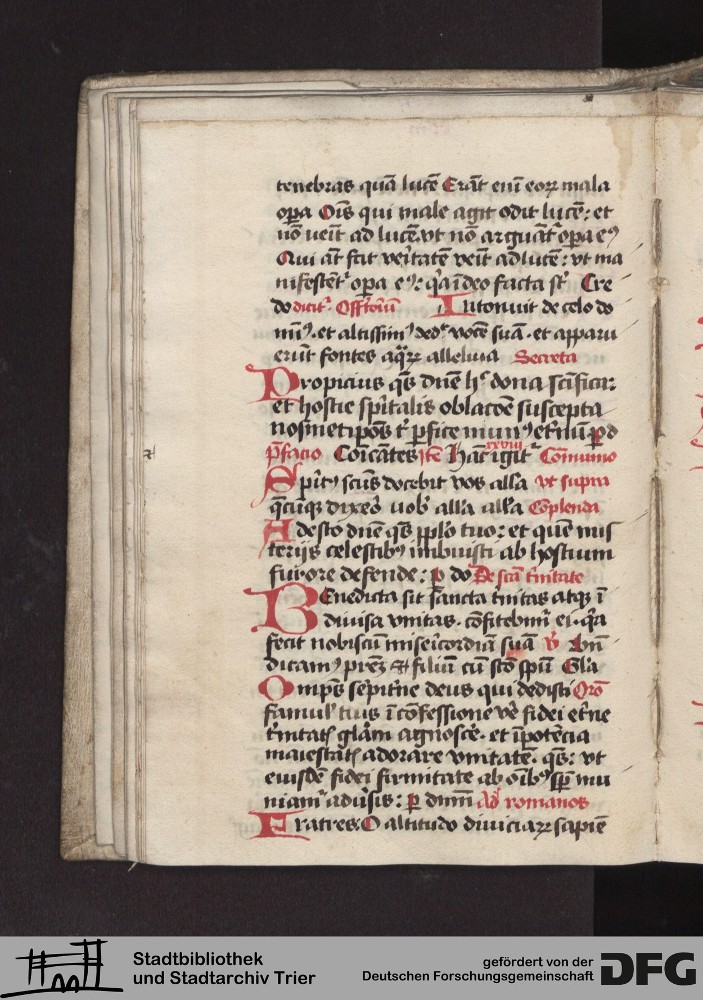 tenebras quā lucē Erāt eni eoꝝ mala
opa Oīs qui male agit odit lucē: et
nō veīt ad lucē vt nō arguāt᷑ opa eꝰ
Qui āt facit veritatē veīt ad lucē: vt ma
nifestēt᷑ opa eꝰ: qꝛ ī deo facta sūt Cre
do dicit᷑ Offtoriū Intonuit de celo do
minꝰ et altissimꝰ dedͭ vocē suā et apparu
erūt fontes aqꝝ alleluia Secreta
Propicius qs dne hͨ dona scifica:
et hostie spitalis oblacōe suscepta
nosmetipos t᷑ perfice munꝰ etnū ꝑ d
pfacio Coicātes Itē Hāc igit᷑ Cōmunio
xxviij
Spirit sctus docebit vos alla vt supra
qcūqꝫ dixero vob alla alla Cōplenda
Adesto dne qs pplo tuo: et quem mis
terijs celestibꝰ imbuisti ab hostium
furore defende: ꝑ do De scā trinitate
BEnedicta sit sancta trinitas atqꝫ ī
diuisa vnitas cōfitebimꝰ ei qꝛ
fecit nobiscū misericordiā suā ꝟ Bn
dicamꝰ prez et filiū cū sto spū Gla
Omps sepitne deus qui dedisti Oro
famul tuis ī cōfessione ve fidei etne
trinitatꝭ glam agnosce et ī potēcia
maiestatꝭ adorare vnitatē qs: vt
eiusdē fidei firmitate ab oībꝰ sp mu
niamur adusis: ꝑ dnm Ad romanos
Fratres O altitudo diuiciaꝝ sapiē
Stadtbibliothek
und Stadtarchiv Trier
gefördert von der
Deutschen Forschungsgemeinschaft
DFG